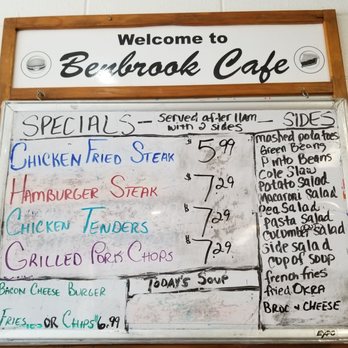 Welcome to
Benbrook Cafe
SPECIALS - Served after 11am with 2 sides - SIDES
CHICKEN FRIED STEAK $5.99
HAMBURGER STEAK $7.29
CHICKEN TENDERS $7.29
GRILLED PORK CHOPS $7.29
BACON CHEESE BURGER
FRIES OR CHIPS $6.99
TODAY'S SOUP
mashed potatoes
Green Beans
Pinto Beans
Cole Slaw
Potato Salad
Macaroni Salad
Pea Salad
Pasta Salad
Cucumber Salad
Side Salad
Cup of Soup
french fries
fried OKRA
BROC & CHEESE
EXPO